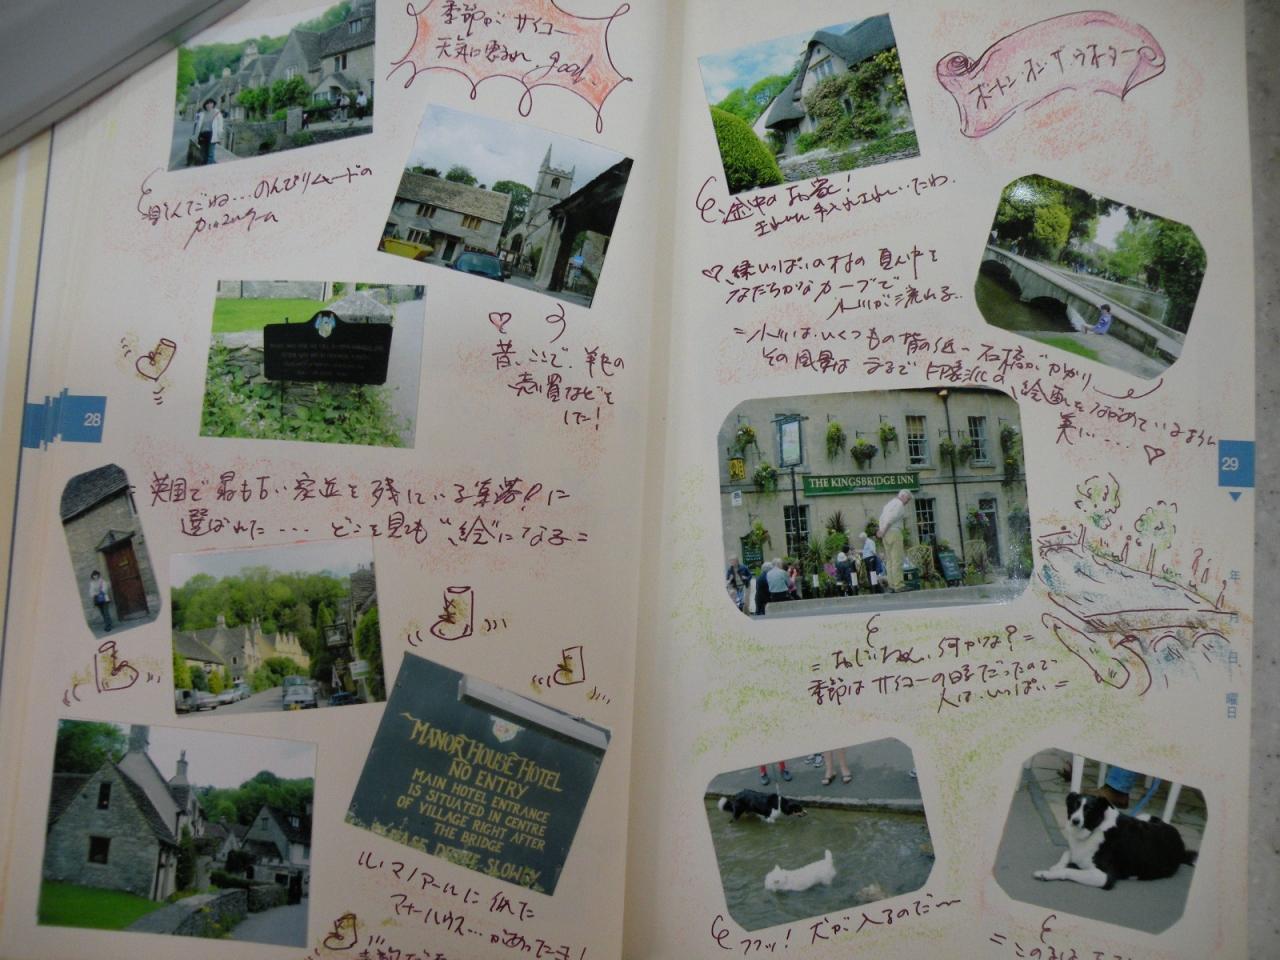 季節がサイコー
天気に恵まれ、good.
のんびりムードの
28
昔、ここで、羊毛の
売り買などを
した!
英国で最も古い家並を残している集落!に
選ばれた・・・・どこを見ても"絵"になる=
MANOR HOUSE HOTEL
NO ENTRY
MAIN HOTEL ENTRANCE
IS SITUATED IN CENTRE
OF VILLAGE RIGHT AFTER
THE BRIDGE
PLEASE DRIVE SLOWLY
ル・マノアールに似た
マナーハウス…があったヨ!
ボートン・オン・ザ・ウォーター
途中のお家!
緑いっぱいの村の真ん中を
なだらかなカーブで
小川が流れる..
=小川はいくつもの背の低い石橋がかかり
その風景はまるで印象派の絵画をながめているように
美しい・・・・
THE KINGSBRIDGE INN
29
年
月
日
曜日
=おじいちゃん、何かな?=
季節はサイコーの日予だったので
人は、いっぱい=
フフッ!犬が入るのだ〜